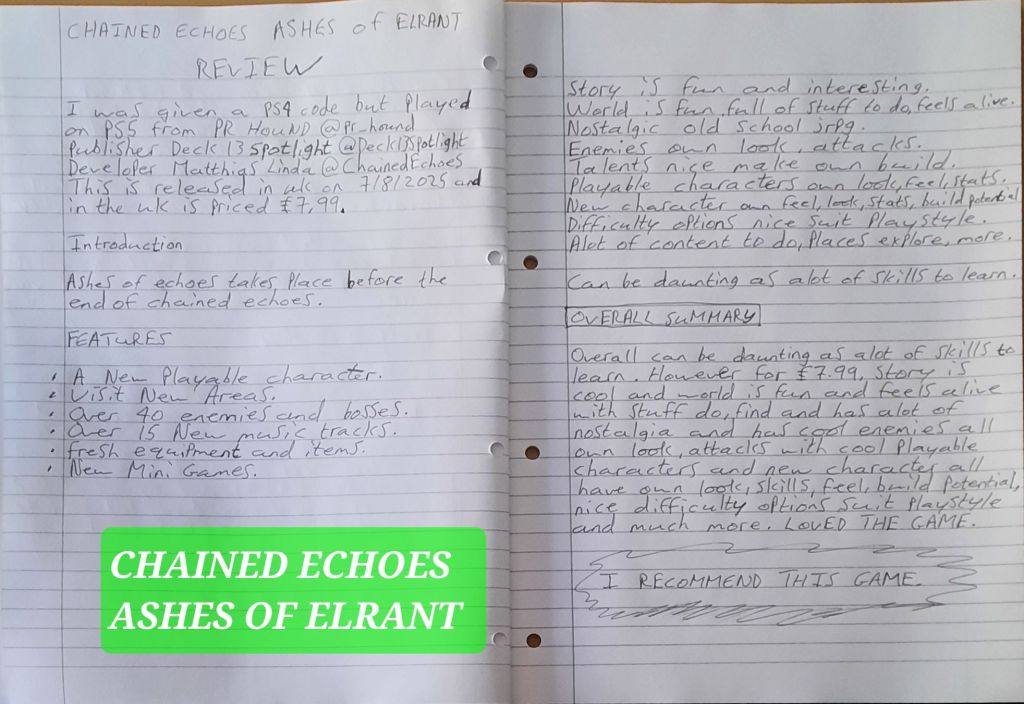 CHAINED ECHOES ASHES of ELRANT
REVIEW
I was given a PS4 code but Played
on PS5 from PR HOUND @Pr_hound
Publisher Deck 13 Spotlight @Deck13Spotlight
Developer Matthias Linda @ChainedEchoes
This is released in uk on 7/8/2025 and
in the uk is Priced £7,99.
Introduction
Ashes of echoes takes Place before the
end of chained echoes.
FEATURES
• A New Playable character.
• Visit New Areas.
• Over 40 enemies and bosses.
• Over 15 New music tracks.
• fresh equipment and items.
• New Mini Games.
CHAINED ECHOES
ASHES OF ELRANT
Story is fun and interesting.
World is fun, full of stuff to do, feels alive.
Nostalgic old school jrpg.
Enemies own look, attacks.
Talents nice make own build.
Playable characters own look, feel, stats.
New character own feel, look, stats, build potential
Difficulty options nice suit Playstyle.
Alot of content to do, Places explore, more.
Can be daunting as alot of skills to learn.
OVERALL SUMMARY
Overall can be daunting as alot of skills to
learn. However for £7.99, Story is
cool and world is fun and feels alive
with stuff do, find and has alot of
nostalgia and has cool enemies all
own look, attacks with cool Playable
characters and new character all
have own look, skills, feel, build Potential,
nice difficulty options suit Playstyle
and much more. LOVED THE GAME.
I RECOMMEND THIS GAME.